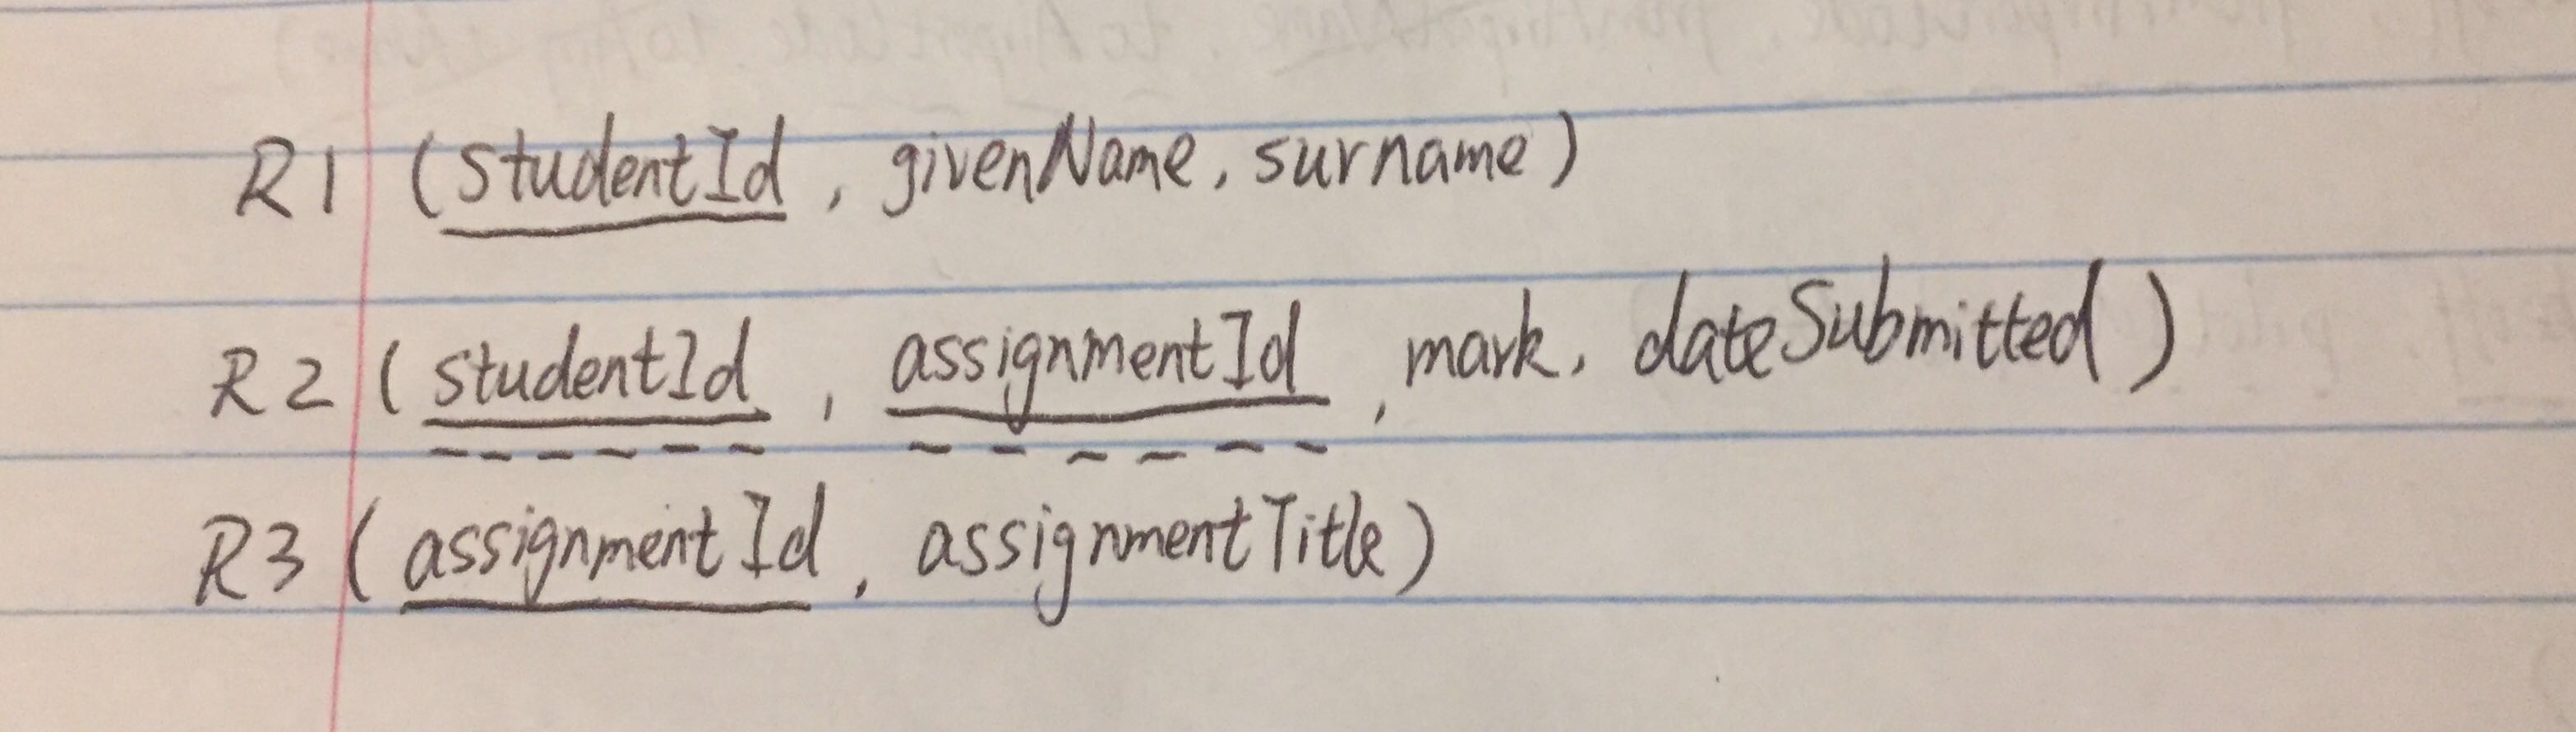 R1 (studentId, givenName, surname)
R2 (studentId, assignmentId, mark, dateSubmitted)
R3 (assignmentId, assignmentTitle)